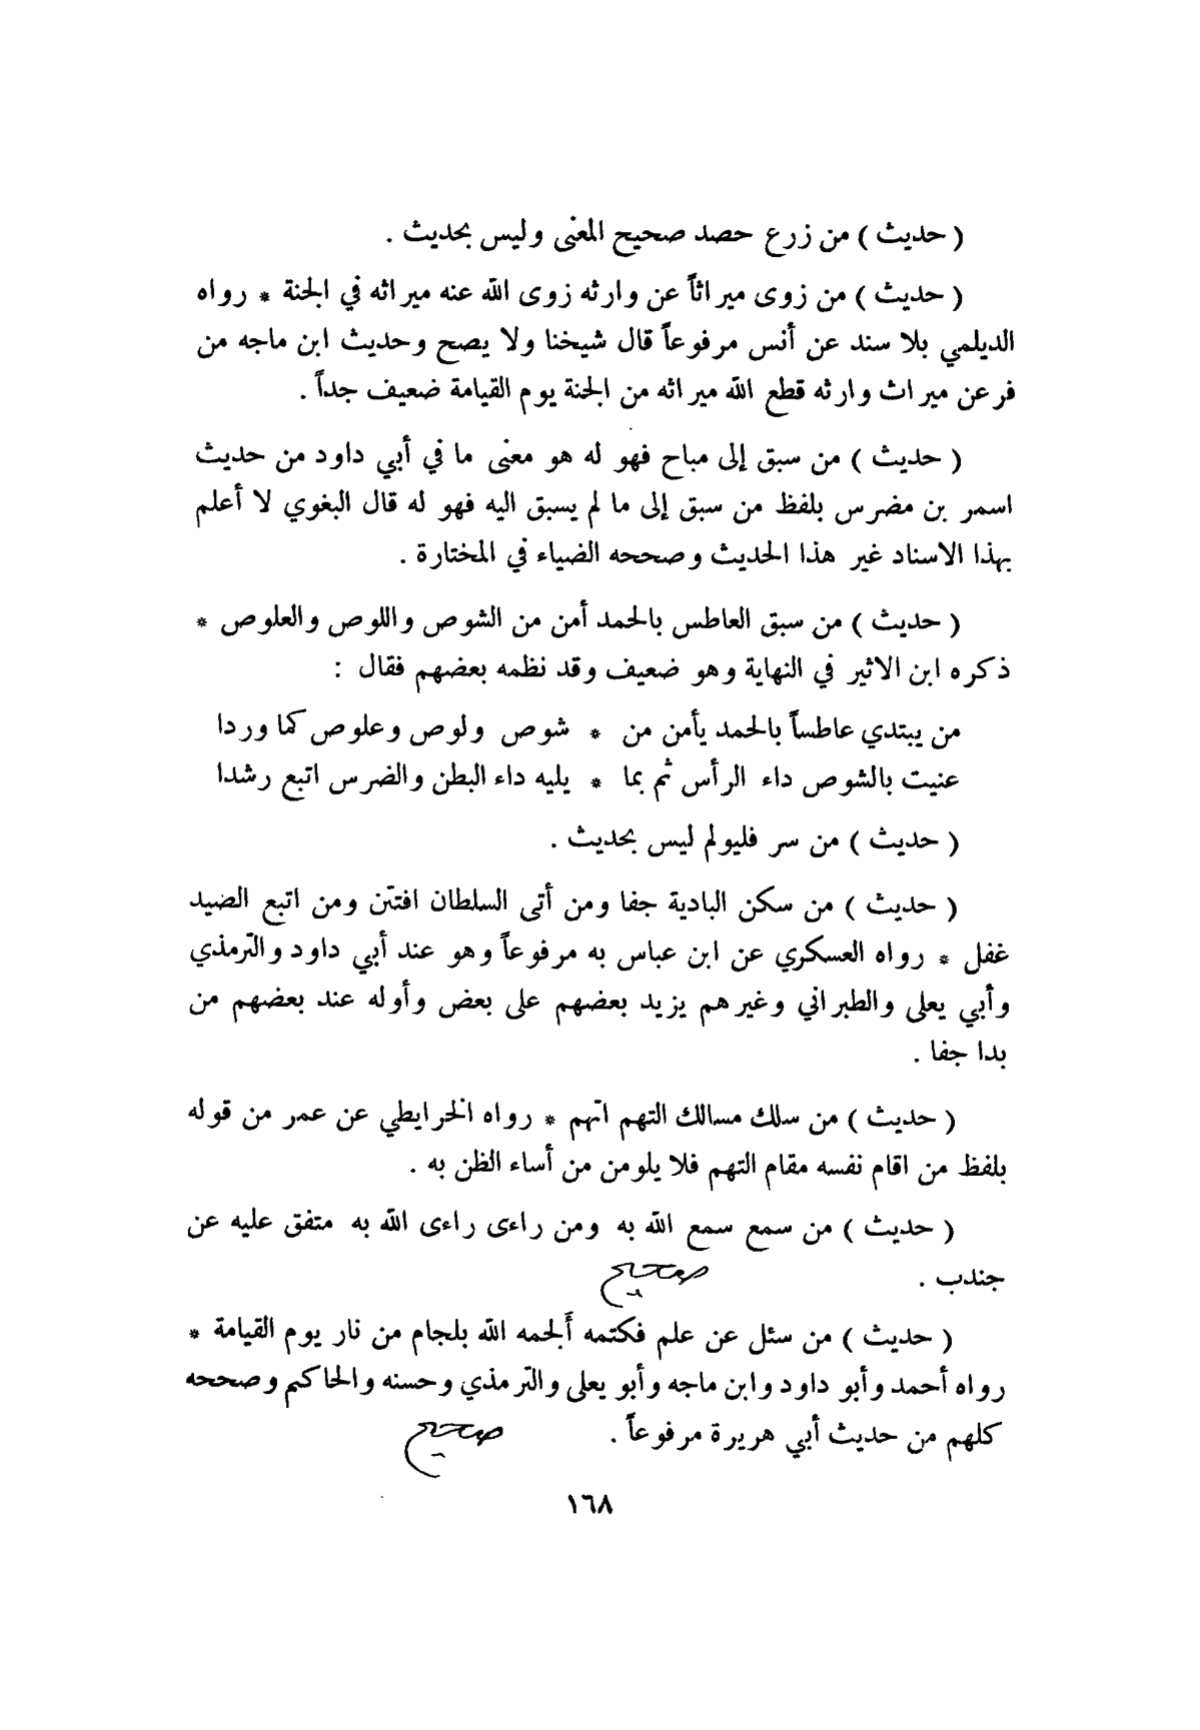 ( حديث ) من زرع حصد صحيح المعنى وليس بحديث .
( حديث ) من زوى ميراثاً عن وارثه زوى الله عنه ميراثه في الجنة * رواه
الديلمي بلا سند عن أنس مرفوعاً قال شيخنا ولا يصح وحديث ابن ماجه من
فر عن ميراث وارثه قطع الله ميراثه من الجنة يوم القيامة ضعيف جداً .
( حديث ) من سبق إلى مباح فهو له هو معنى ما في أبي داود من حديث
اسمر بن مضرس بلفظ من سبق إلى ما لم يسبق اليه فهو له قال البغوي لا أعلم
بهذا الاسناد غير هذا الحديث وصححه الضياء في المختارة .
( حديث ) من سبق العاطس بالحمد أمن من الشوص واللوص والعلوص *
ذكره ابن الاثير في النهاية وهو ضعيف وقد نظمه بعضهم فقال :
من يبتدي عاطساً بالحمد يأمن من * شوص ولوص وعلوص كما وردا
عنيت بالشوص داء الرأس ثم بما * يليه داء البطن والضرس اتبع رشدا
( حديث ) من سر فليولم ليس بحديث .
( حديث ) من سكن البادية جفا ومن أتى السلطان افتتن ومن اتبع الصيد
غفل * رواه العسكري عن ابن عباس به مرفوعاً وهو عند أبي داود والترمذي
وأبي يعلى والطبراني وغيرهم يزيد بعضهم على بعض وأوله عند بعضهم من
بدا جفا .
( حديث ) من سلك مسالك التهم اتهم * رواه الخرايطي عن عمر من قوله
بلفظ من اقام نفسه مقام التهم فلا يلومن من أساء الظن به .
( حديث ) من سمع سمع الله به ومن راءى راءى الله به متفق عليه عن
جندب . صحيح
( حديث ) من سئل عن علم فكتمه أَلجمه الله بلجام من نار يوم القيامة *
رواه أحمد وأبو داود وابن ماجه وأبو يعلى والترمذي وحسنه والحاكم وصححه
كلهم من حديث أبي هريرة مرفوعاً . صحيح
١٦٨